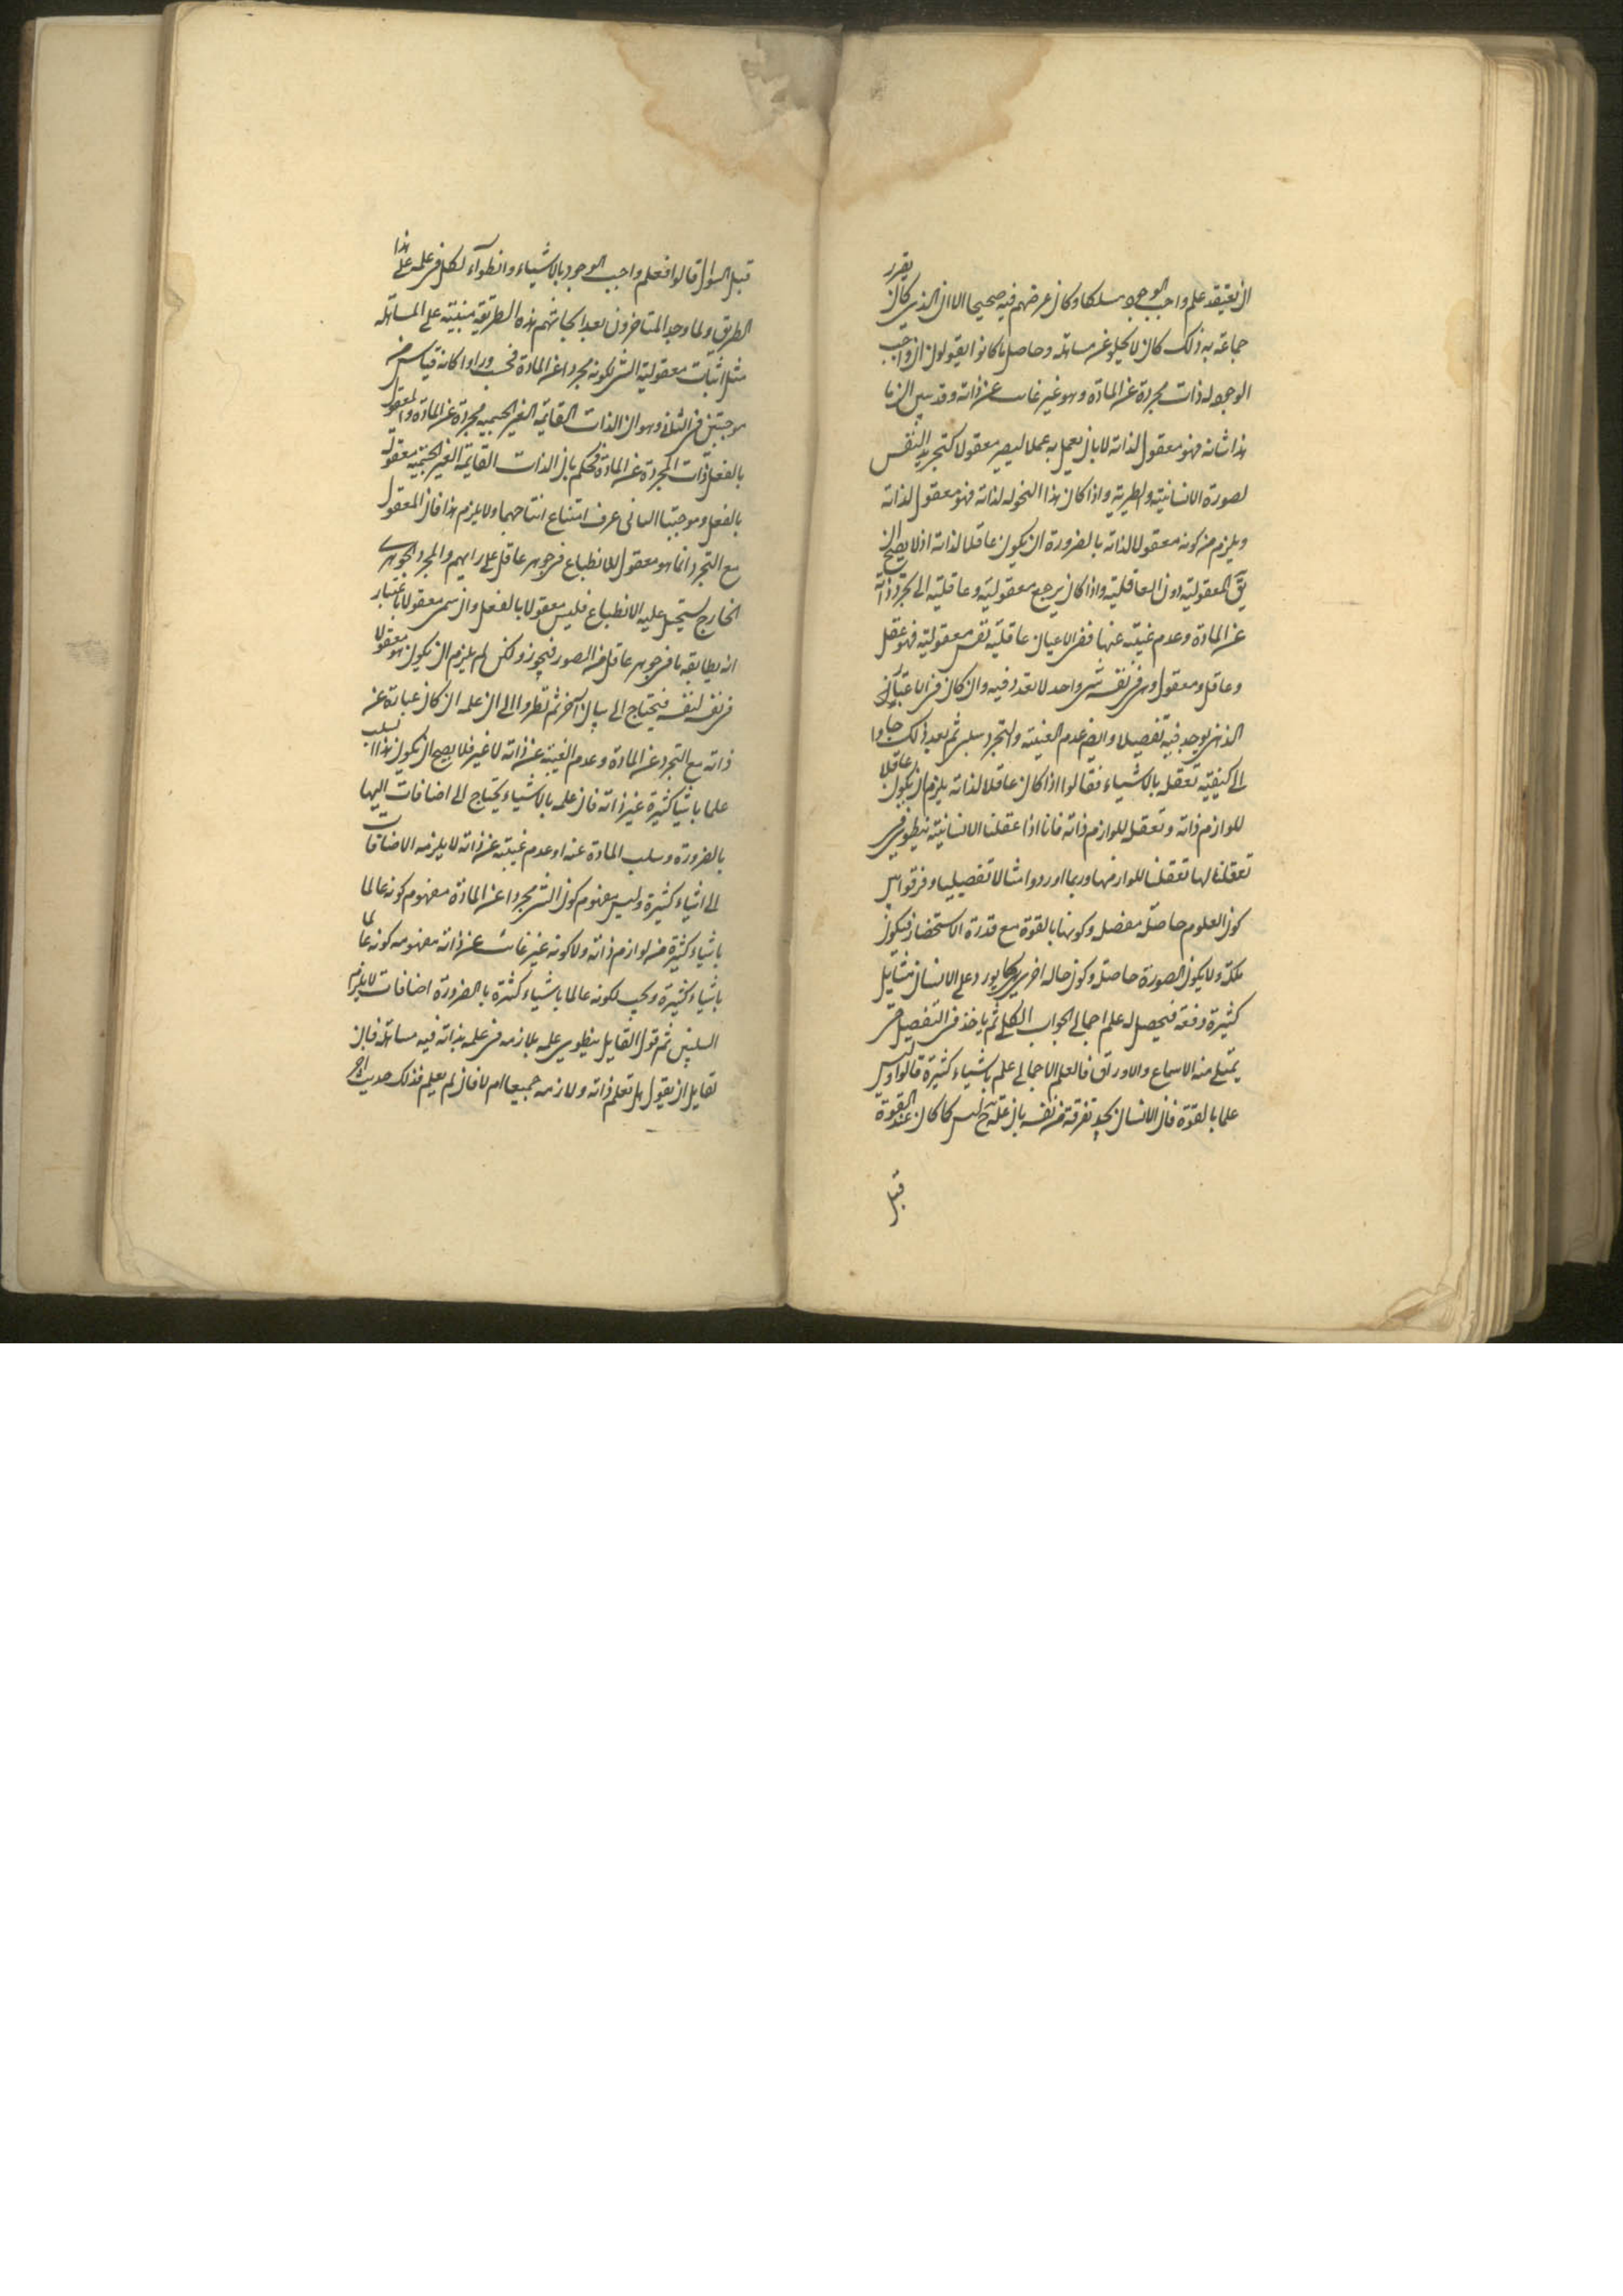 ان يعتقد علم واجب الوجود مسلكا وكان غرضهم فيه صحيحا الا ان الذي كان يقرر
جماعة به ذلك كان لا يخلو عن مساهلة وحاصل ما كانوا يقولون ان واجب
الوجود له ذات مجردة عن المادة وهو غير غائب عن ذاته وقد تبين ان ما
هذا شانه فهو معقول لذاته لا بان يعمل به عملا ليصير معقولا كتجريد النفس
لصورة الانسانية والطيرية واذا كان هذا النحو له لذاته فهو معقول لذاته
ويلزم من كونه معقولا لذاته بالضرورة ان يكون عاقلا لذاته اذ لا يصح ان
يق المعقولية دون العاقلية واذا كان يرجع معقوليته وعاقليته الى تجرد ذاته
عن المادة وعدم غيبته عنها ففي الاعيان عاقليته نفس معقوليته فهو عقل
وعاقل ومعقول وهي في نفسه شي واحد لا تعدد فيه وان كان في الاعتبار
الذهني يوجد فيه تفصيل وايضا عدم الغيبة والتجرد سلبي ثم بعد ذلك جاوا
الى كيفية تعقله بالاشياء فقالوا اذا كان عاقلا لذاته يلزم ان يكون عاقلا
للوازم ذاته وتعقل للوازم ذاته فانا اذا عقلنا الانسانية ينطوي في
تعقلنا لها تعقلنا للوازمها وربما اوردوا مثالا تفصيليا وفرقوا بين
كون العلوم حاصلة مفصلة وكونها بالقوة مع قدرة الاستحضار فيكون
ملكة ولا يكون الصورة حاصلة وكون حاله اخرى كما يورد على الانسان مسايل
كثيرة دفعة فيحصل له علم اجمالي بجواب الكل ثم ياخذ في التفصيل حتى
يمتلي منه الاسماع والاوراق فالعلم الاجمالي علم باشياء كثيرة قالوا وليس
علما بالقوة فان الانسان يجد تفرقة من نفسه بان علمه ح ليس كما كان عند القوة
قبل
قبل السوال قالوا فعلم واجب الوجود بالاشياء وانطواء الكل في علمه على هذا
الطريق ولما وجد المتاخرون بعد ابحاثهم هذه الطريقة مبنية على المساهلة
مثل اثبات معقولية الشي لكونه مجردا عن المادة فحسب وراوا كانه قياس من
موجبتين في الثاني وهو ان الذات القايمة الغير الجسمية مجردة عن المادة والمعقول
بالفعل ذات مجردة عن المادة فحكم بان الذات القايمة الغير الجسمية معقولة
بالفعل وموجبتا الثاني عرف امتناع انتاجهما ولا يلزم هذا فان المعقول
مع التجرد انما هو معقول للانطباع في جوهر عاقل على رايهم والمجرد الجوهري
الخارج يستحيل عليه الانطباع فليس معقولا بالفعل وان سمي معقولا باعتبار
انه يطابقه ما في جوهر عاقل من الصور فيجوز ولكن لم يلزم ان يكون هو معقولا
في نفسه لنفسه فيحتاج الى بيان آخر ثم نظروا الى ان علمه ان كان عبارة عن
ذاته مع التجرد عن المادة وعدم الغيبة عن ذاته لا غير فلا يصح ان يكون هذا السلب
علما باشيا كثيرة غير ذاته فان علمه بالاشياء يحتاج الى اضافات اليها
بالضرورة وسلب المادة عنه او عدم غيبته عن ذاته لا يلزمه الاضافات
الى اشياء كثيرة وليس مفهوم كون الشي مجردا عن المادة مفهوم كونه عالما
باشياء كثيرة من لوازم ذاته ولا كونه غير غائب عن ذاته مفهومه كونه عالما
باشياء كثيرة ويجب لكونه عالما باشياء كثيرة بالضرورة اضافات لا يلزم
السلبين ثم قول القايل ينطوي علمه بلازمه في علمه بذاته فيه مساهلة فان
لقايل ان يقول هل تعلم ذاته ولازمه جميعا ام لا فان لم يعلم فذلك حديث اخر